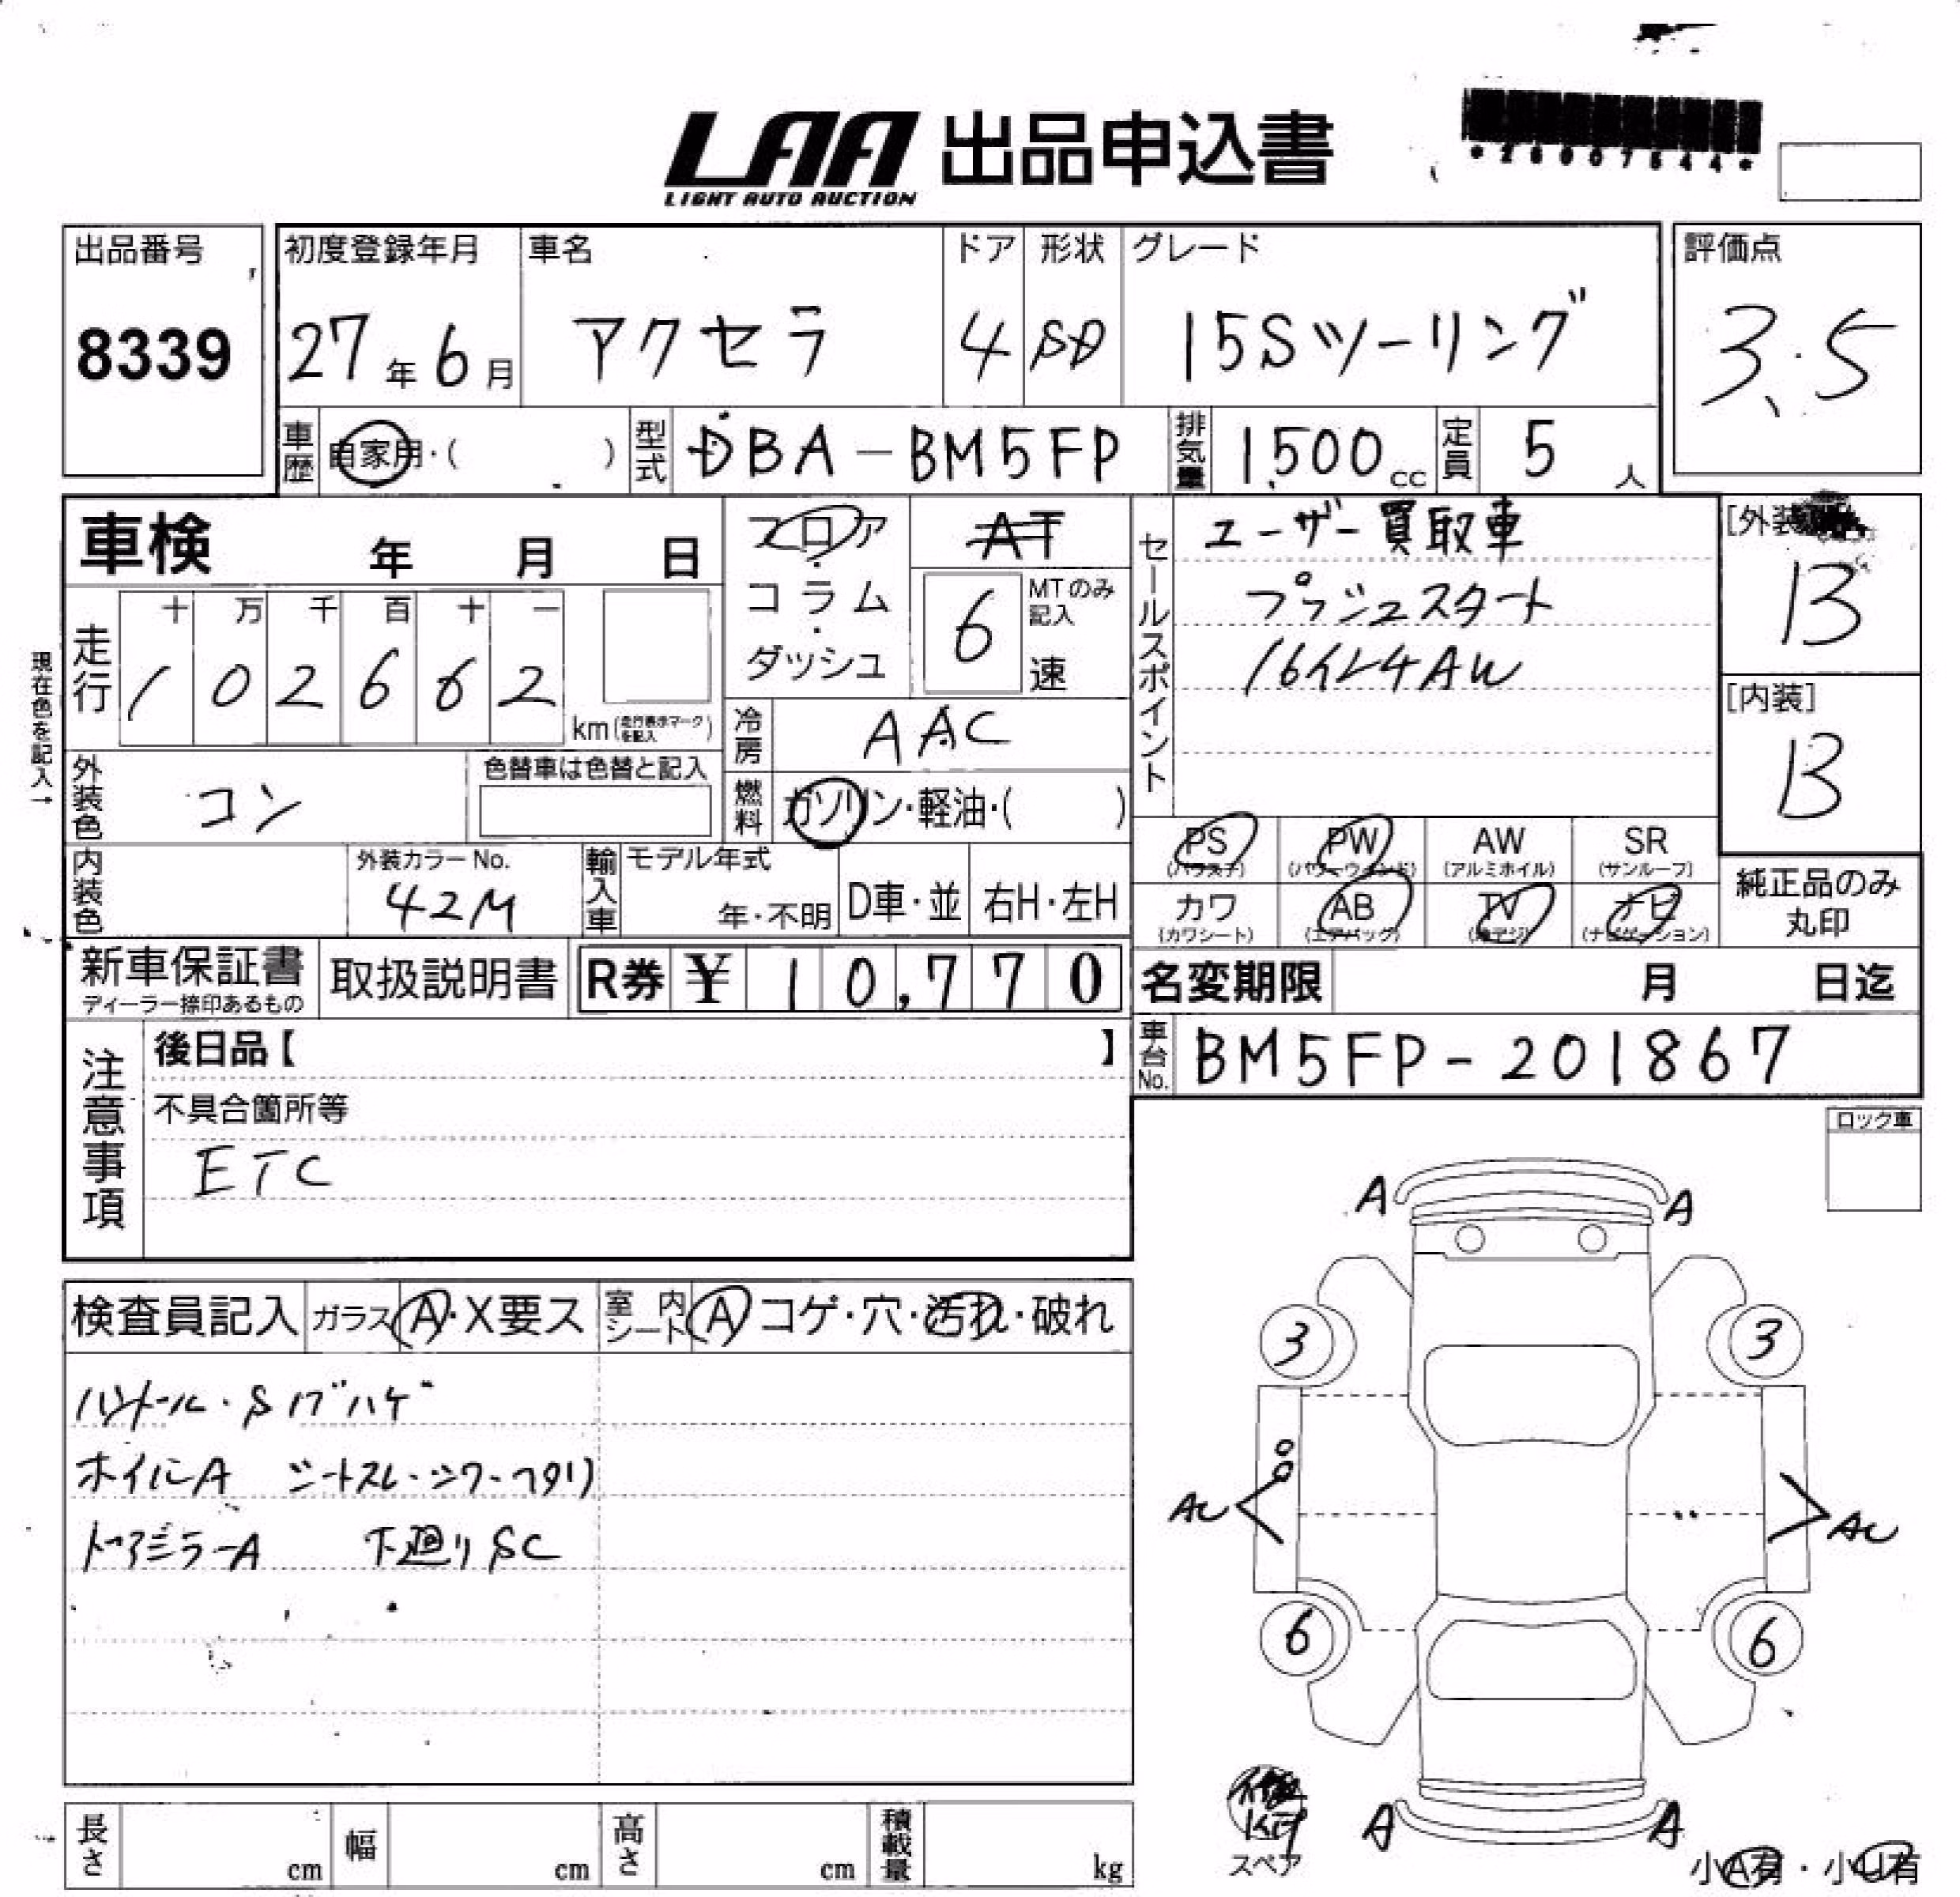 LAA 出品申込書
LIGHT AUTO AUCTION
出品番号
8339
初度登録年月
27年6月
車名
アクセラ
ドア
4
形状
SD
グレード
15Sツーリング
評価点
3.5
車歴
自家用・( )
型式
DBA-BM5FP
排気量
1,500cc
定員
5人
車検 年 月 日
フロア・コラム・ダッシュ
AT
6
MTのみ記入
速
セールスポイント
ユーザー買取車
プッシュスタート
16インチAW
[外装]
B
[内装]
B
現在色を記入→
走行
十 万 千 百 十 一
1 0 2 6 6 2
km(走行表示マークを記入)
冷房
AAC
燃料
ガソリン・軽油・( )
外装色
コン
色替車は色替と記入
内装色
外装カラーNo.
42M
輸入車
モデル年式
年・不明
D車・並
右H・左H
PS
(パワステ)
PW
(パワーウインド)
AW
(アルミホイル)
SR
(サンルーフ)
カワ
(カワシート)
AB
(エアバッグ)
TV
(地デジ)
ナビ
(ナビゲーション)
純正品のみ
丸印
新車保証書
ディーラー捺印あるもの
取扱説明書
R券 ¥10,770
名変期限 月 日迄
車台No.
BM5FP-201867
注意事項
後日品【 】
不具合箇所等
ETC
ロック車
検査員記入
ガラス
A・X要ス
室内シート
A コゲ・穴・汚れ・破れ
ハンドル・Sノブハゲ
ホイルA シートスレ・シワ・ヘタリ
ドアミラーA 下廻りSC
A A
3 3
AC AC
6 6
A A
スペア
小A有・小U有
長さ cm
幅 cm
高さ cm
積載量 kg